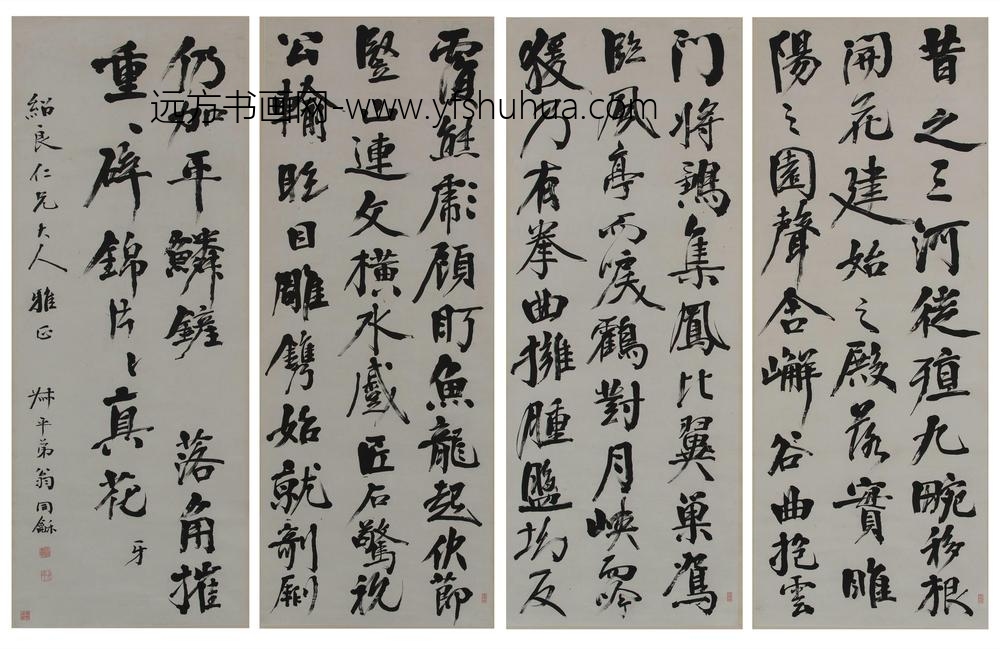 昔之三河徙殖九畹移根
開花建始之殿落實睢
陽之園聲含嶰谷曲抱雲
門將鶵集鳳比翼巢鴛
臨風亭而唳鶴對月峽而吟
猨乃有拳曲擁腫盤坳反
覆熊彪顧盼魚龍起伏節
豎山連文橫水蹙匠石驚視
公輸眩目雕鐫始就剞劂
仍加平鱗鏟 落角摧
牙
重々碎錦片々真花
紹良仁兄大人雅正 叔平弟翁同龢
远方书画网-www.yfshuhua.com